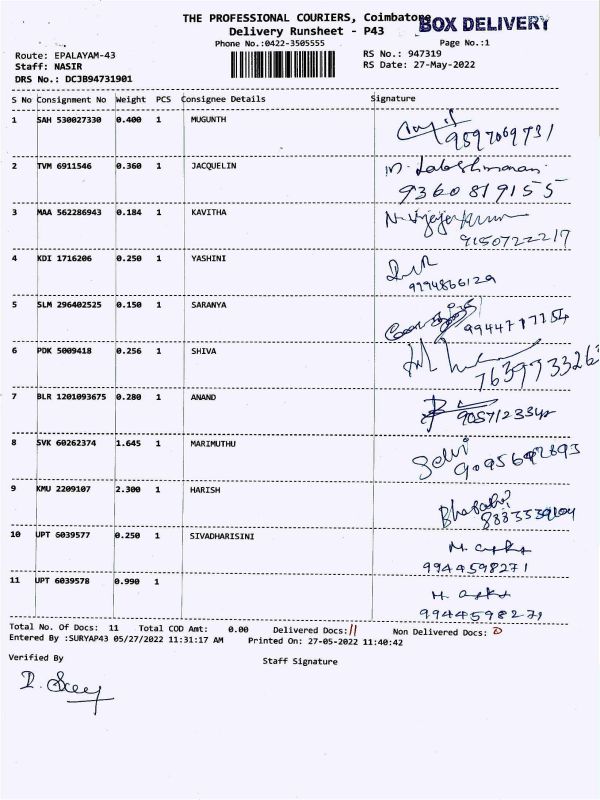 THE PROFESSIONAL COURIERS, Coimbatore
BOX DELIVERY
Delivery Runsheet - P43
Phone No.:0422-3505555
Page No.:1
Route: EPALAYAM-43
RS No.: 947319
Staff: NASIR
RS Date: 27-May-2022
DRS No.: DCJB94731901
S No Consignment No Weight PCS Consignee Details Signature
1 SAH 530027330 0.400 1 MUGUNTH
9597069731
2 TVM 6911546 0.360 1 JACQUELIN
9360819155
3 MAA 562286943 0.184 1 KAVITHA
9150722217
4 KDI 1716206 0.250 1 YASHINI
5 SLM 296402525 0.150 1 SARANYA
6 PDK 5009418 0.256 1 SHIVA
7 BLR 1201093675 0.280 1 ANAND
8 SVK 60262374 1.645 1 MARIMUTHU
Selvi
9 KMU 2209107 2.300 1 HARISH
10 UPT 6039577 0.250 1 SIVADHARISINI
9944598271
11 UPT 6039578 0.990 1
9944598271
Total No. Of Docs: 11 Total COD Amt: 0.00 Delivered Docs: 11 Non Delivered Docs: 0
Entered By :SURYAP43 05/27/2022 11:31:17 AM Printed On: 27-05-2022 11:40:42
Verified By Staff Signature